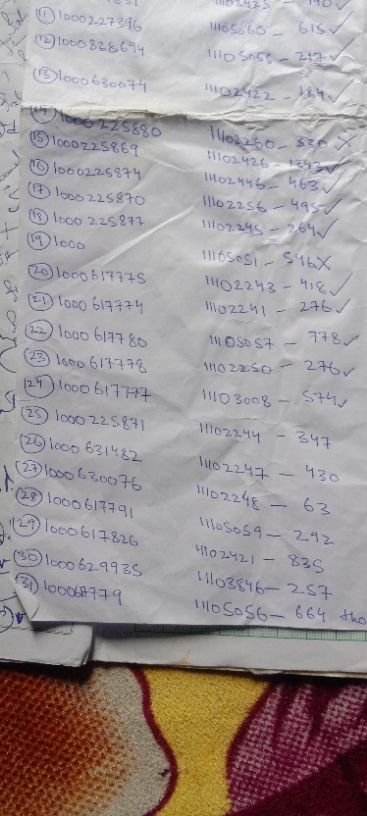 (11) 1000227396 11105060 - 615 ✓
(12) 1000838694 11105058 - 247 ✓
(13) 1000630074 11102422 - 184 ✓
(14) 1000225880 11102260 - 530 X
(15) 1000225869 11102426 - 1343 ✓
(16) 1000225874 11102446 - 463 ✓
(17) 1000225870 11102256 - 495 ✓
(18) 1000225877 11102245 - 264 ✓
(19) 1000 11105051 - 546 X
(20) 1000617775 11102243 - 418 ✓
(21) 1000617774 11102241 - 276 ✓
(22) 1000617780 11105057 - 778 ✓
(23) 1000617778 11102250 - 276 ✓
(24) 1000617777 11103008 - 574 ✓
(25) 1000225871 11102244 - 347
(26) 1000631482 11102247 - 430
(27) 1000630076 11102248 - 63
(28) 1000617791 11105059 - 292
(29) 1000617826 11102421 - 835
(30) 1000629935 11103846 - 257
(31) 11105056 - 664